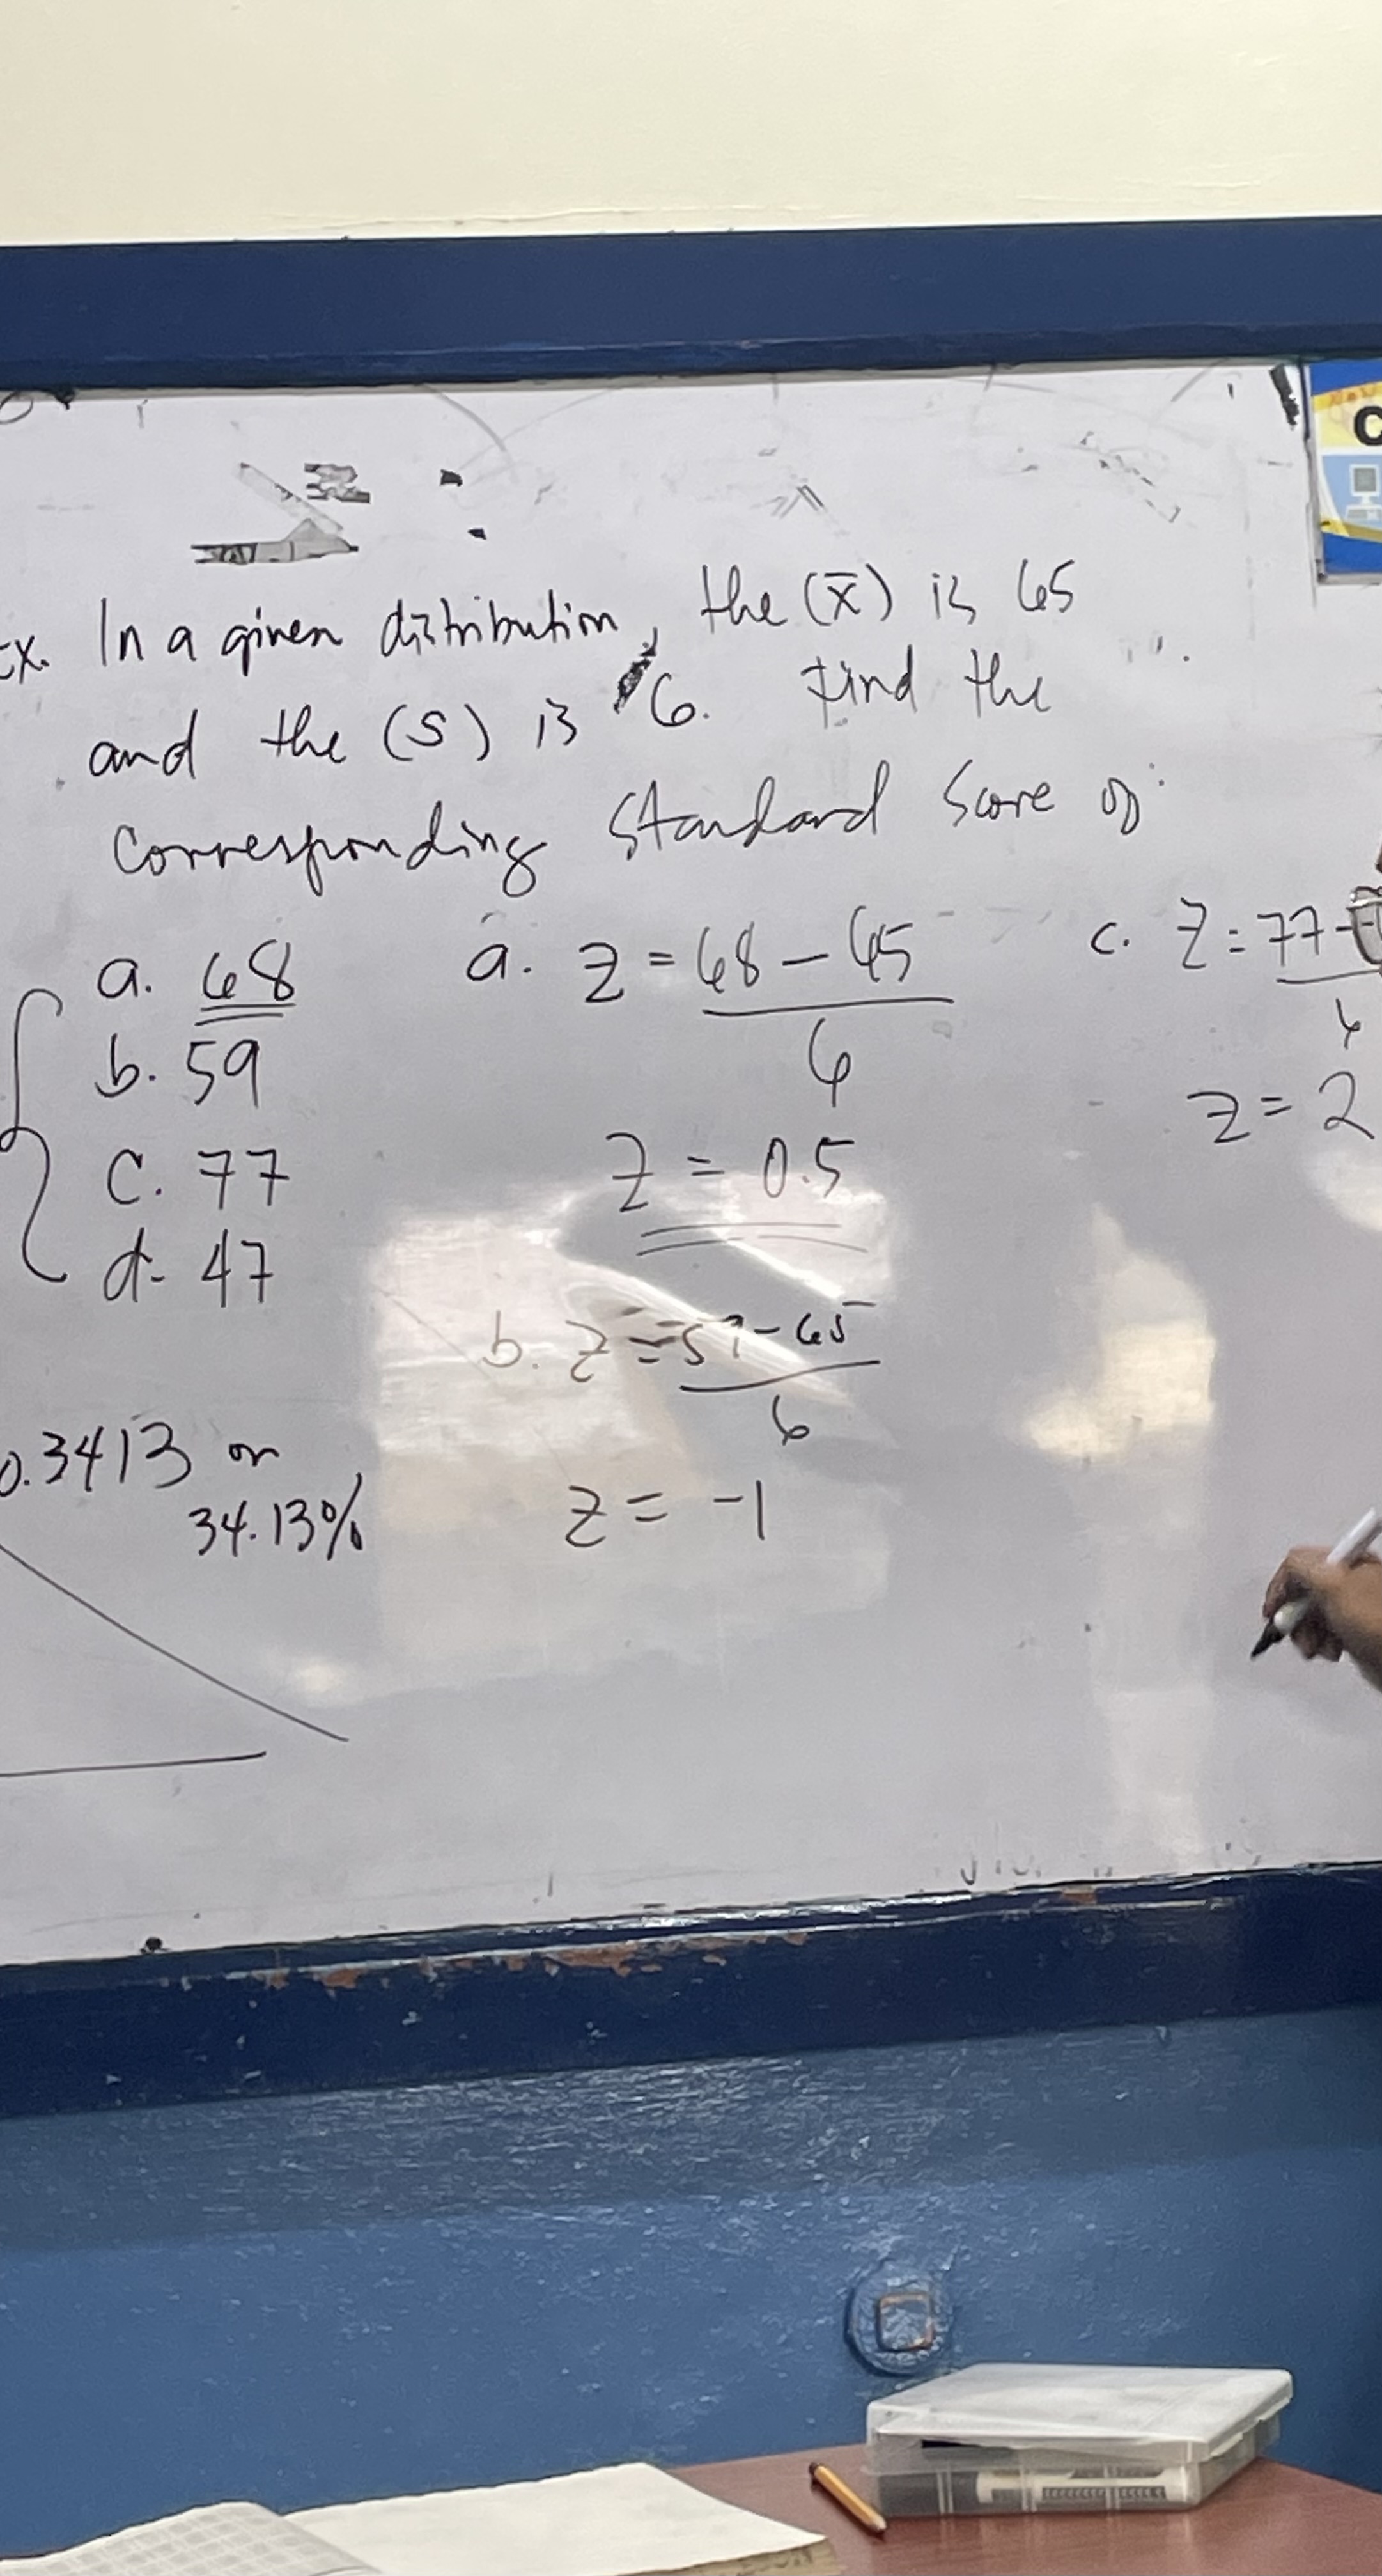 Ex. In a given distribution, the (x̄) is 65
and the (S) is 6. Find the
corresponding standard score of:
a. 68
b. 59
c. 77
d. 47
a. Z = 68 - 65
6
Z = 0.5
b. Z = 59 - 65
6
Z = -1
c. Z = 77 -
6
Z = 2
0.3413 or
34.13%